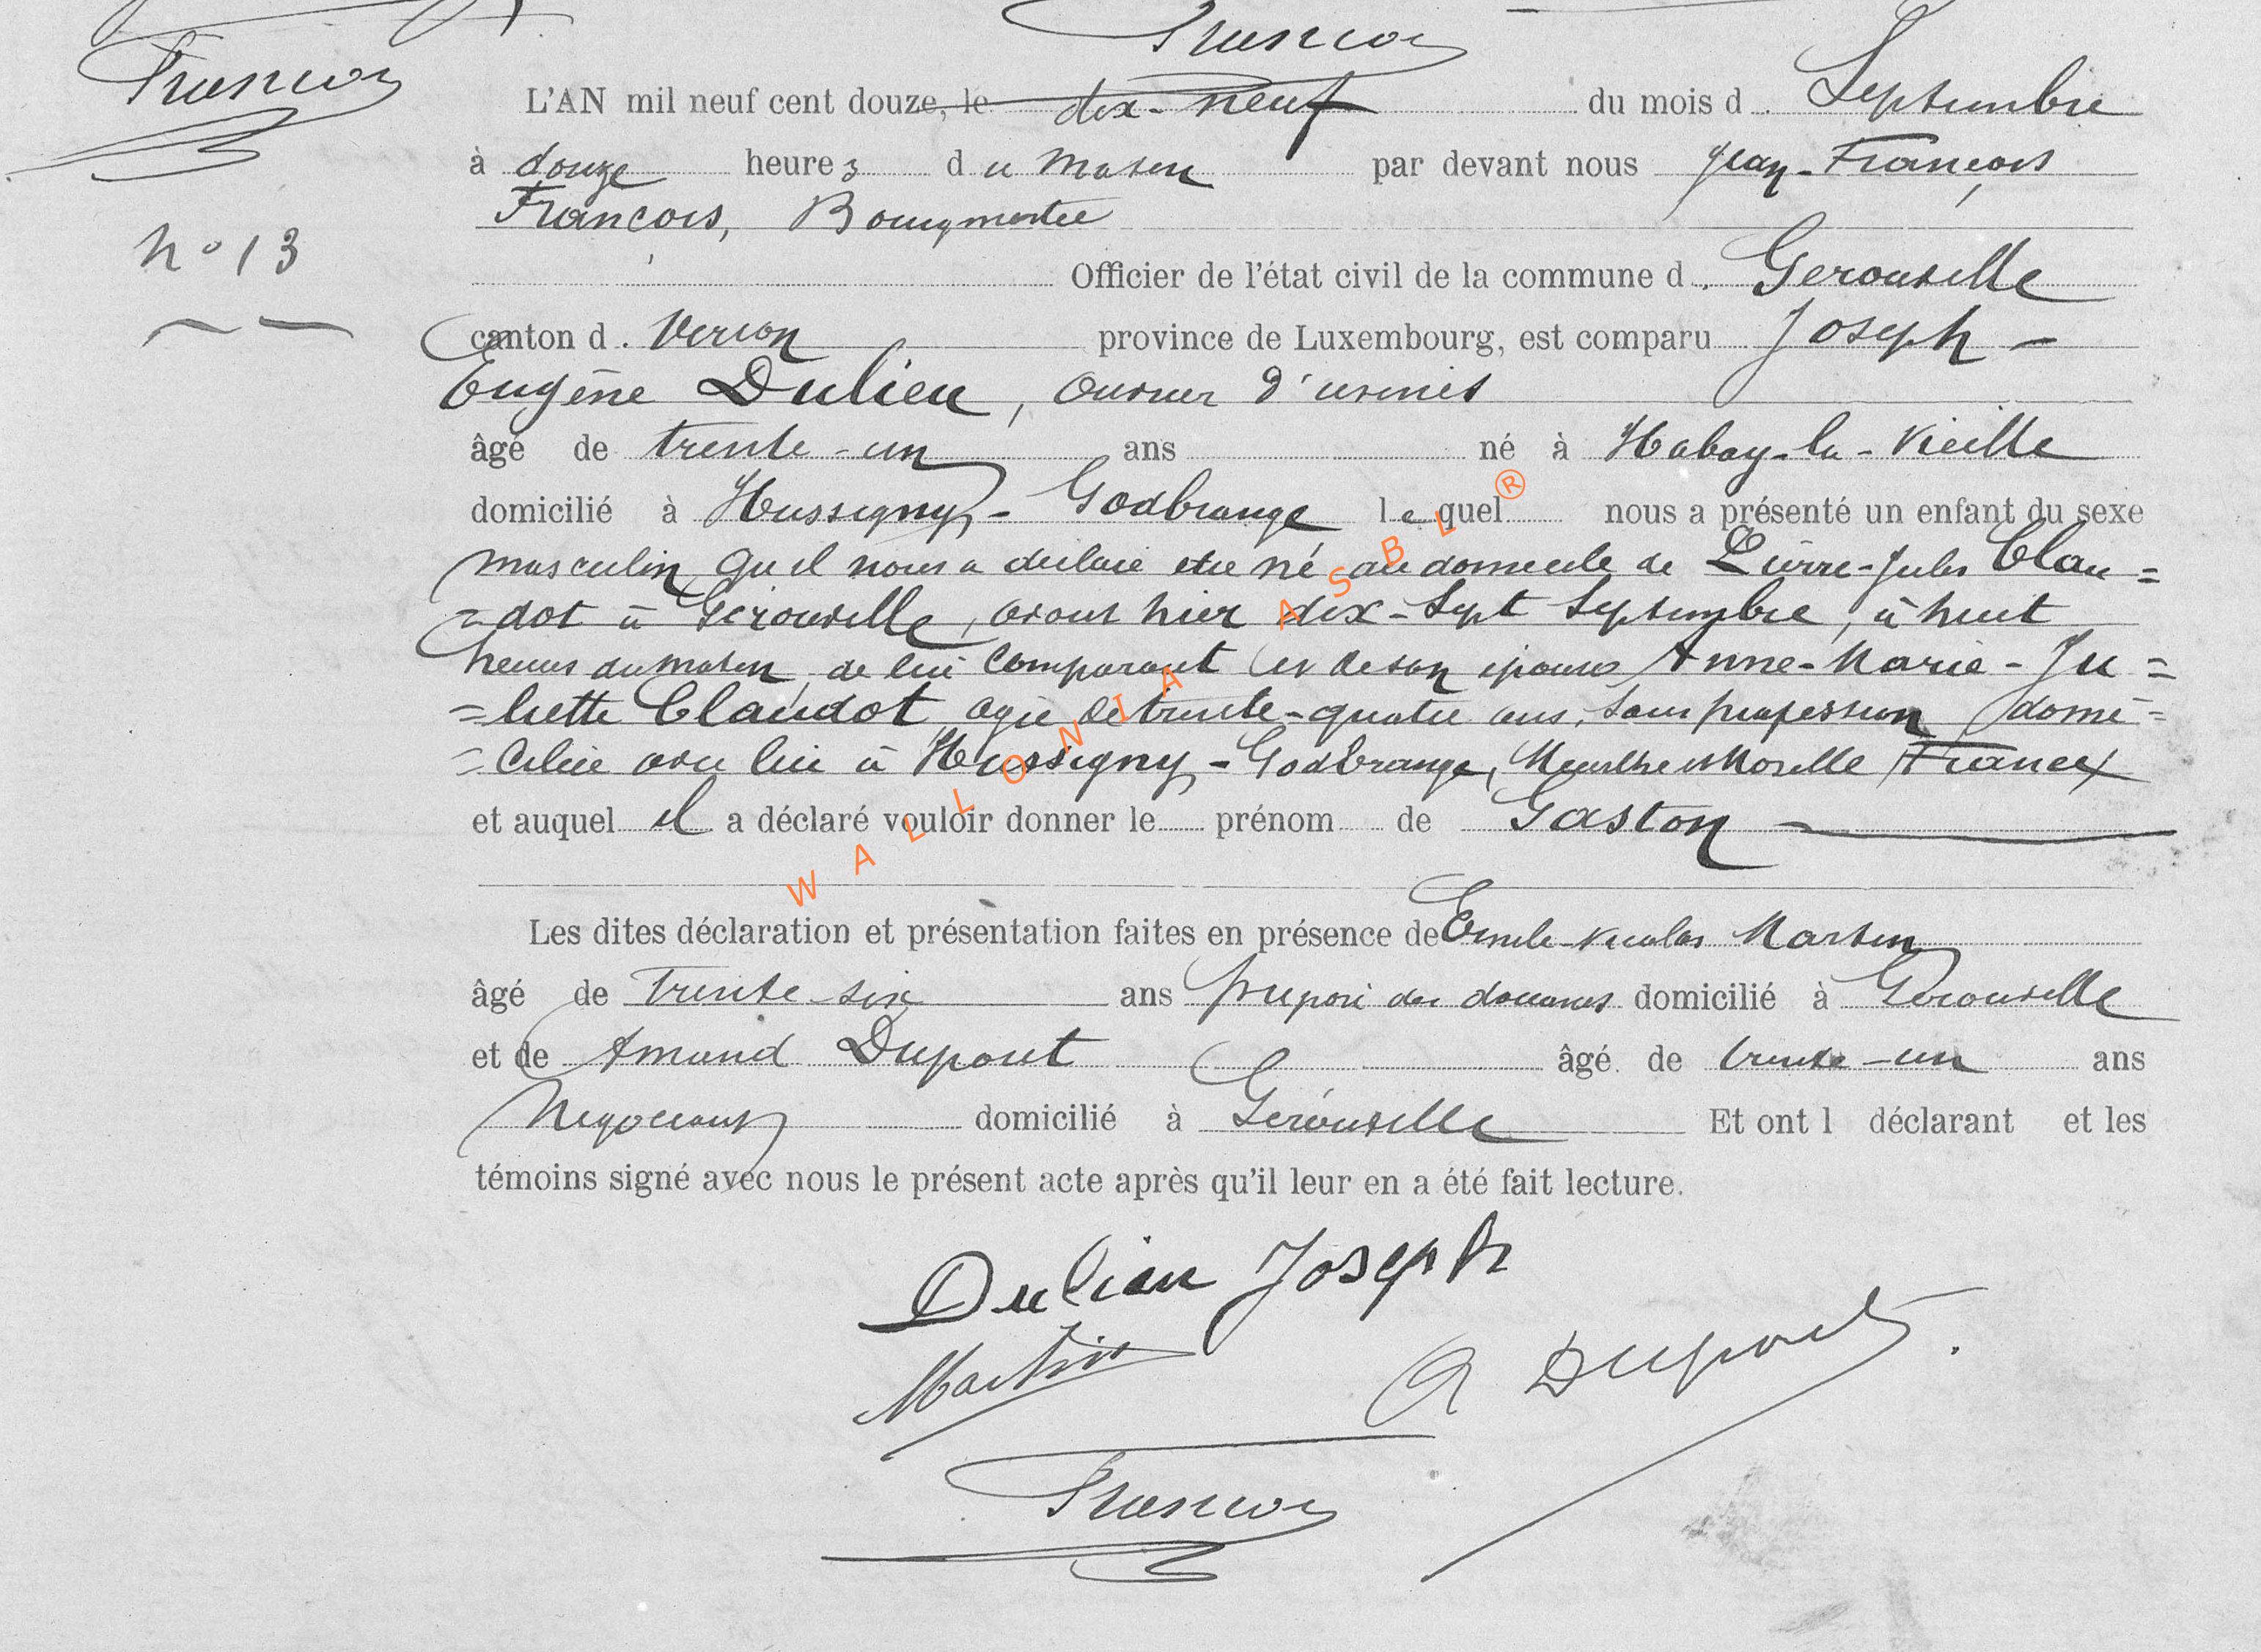 François
François
L'AN mil neuf cent douze, le dix-neuf du mois d Septembre
à douze heures du matin par devant nous Jean-François
François, Bourgmestre
n° 13
Officier de l'état civil de la commune d Gerouville
canton d Virton province de Luxembourg, est comparu Joseph-
Eugène Dulieu, ouvrier d'usines
âgé de trente-un ans né à Habay-la-Vieille
domicilié à Hussigny-Godbrange lequel nous a présenté un enfant du sexe
masculin qu'il nous a déclaré être né au domicile de Pierre-Jules Clau=
=dot à Gérouville, avant hier dix-sept Septembre, à huit
heures du matin, de lui comparant et de son épouse Anne-Marie-Ju=
=liette Claudot agée de trente-quatre ans, sans profession domi=
=ciliée avec lui à Hussigny-Godbrange, Meurthe et Moselle (France)
et auquel il a déclaré vouloir donner le prénom de Gaston
Les dites déclaration et présentation faites en présence de Emile-Nicolas Martin
âgé de trente-six ans préposé des douanes domicilié à Gérouville
et de Amand Dupont âgé de trente-un ans
Négociant domicilié à Gérouville Et ont l déclarant et les
témoins signé avec nous le présent acte après qu'il leur en a été fait lecture.
Dulieu Joseph
Martin A Dupont.
François
WALLONIA ASBL ®